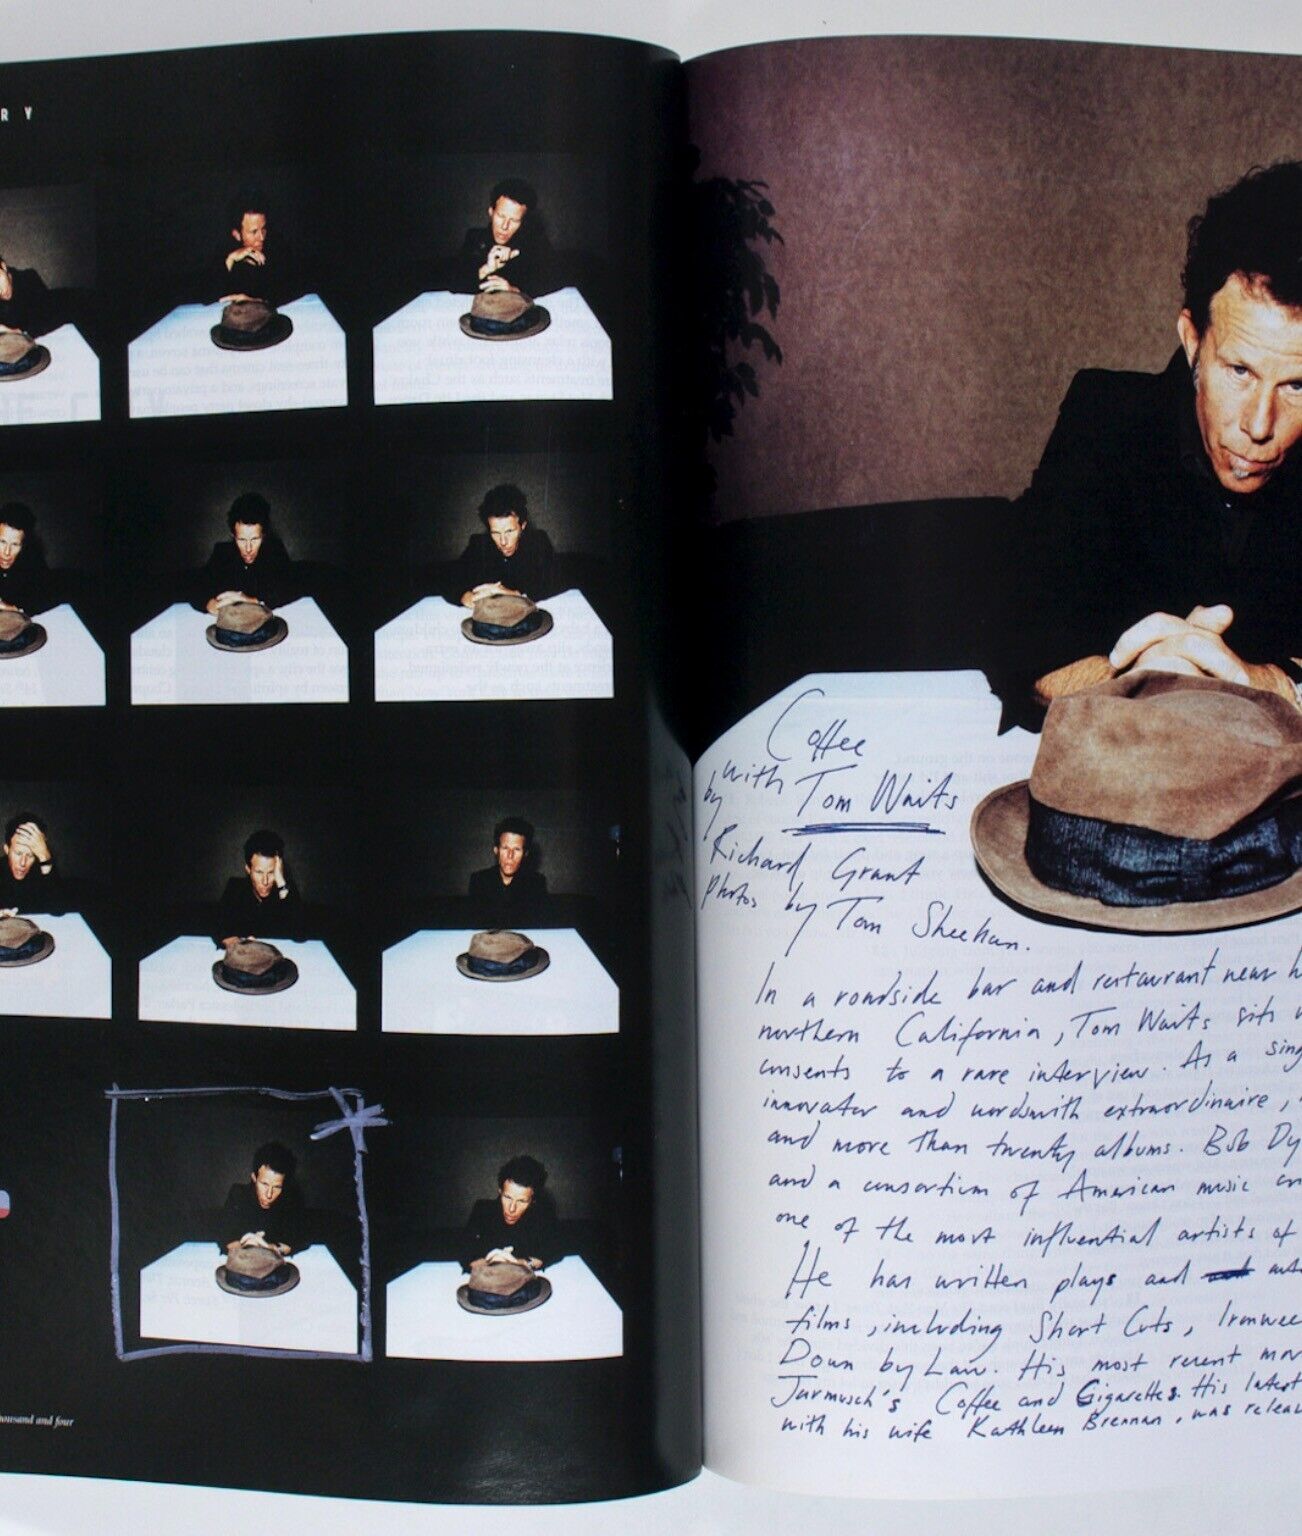 R Y
Coffee
with Tom Waits
by
Richard Grant
Photos by Tom Sheehan.
In a roadside bar and restaurant near h
northern California, Tom Waits sits
consents to a rare interview. As a sing
innovator and wordsmith extraordinaire,
and more than twenty albums. Bob Dy
and a consortium of American music
one of the most influential artists of
He has written plays and
films, including Short Cuts, Ironwee
Down by Law. His most recent mo
Jarmusch's Coffee and Cigarettes. His latest
with his wife Kathleen Brennan, was releas
ousand and four